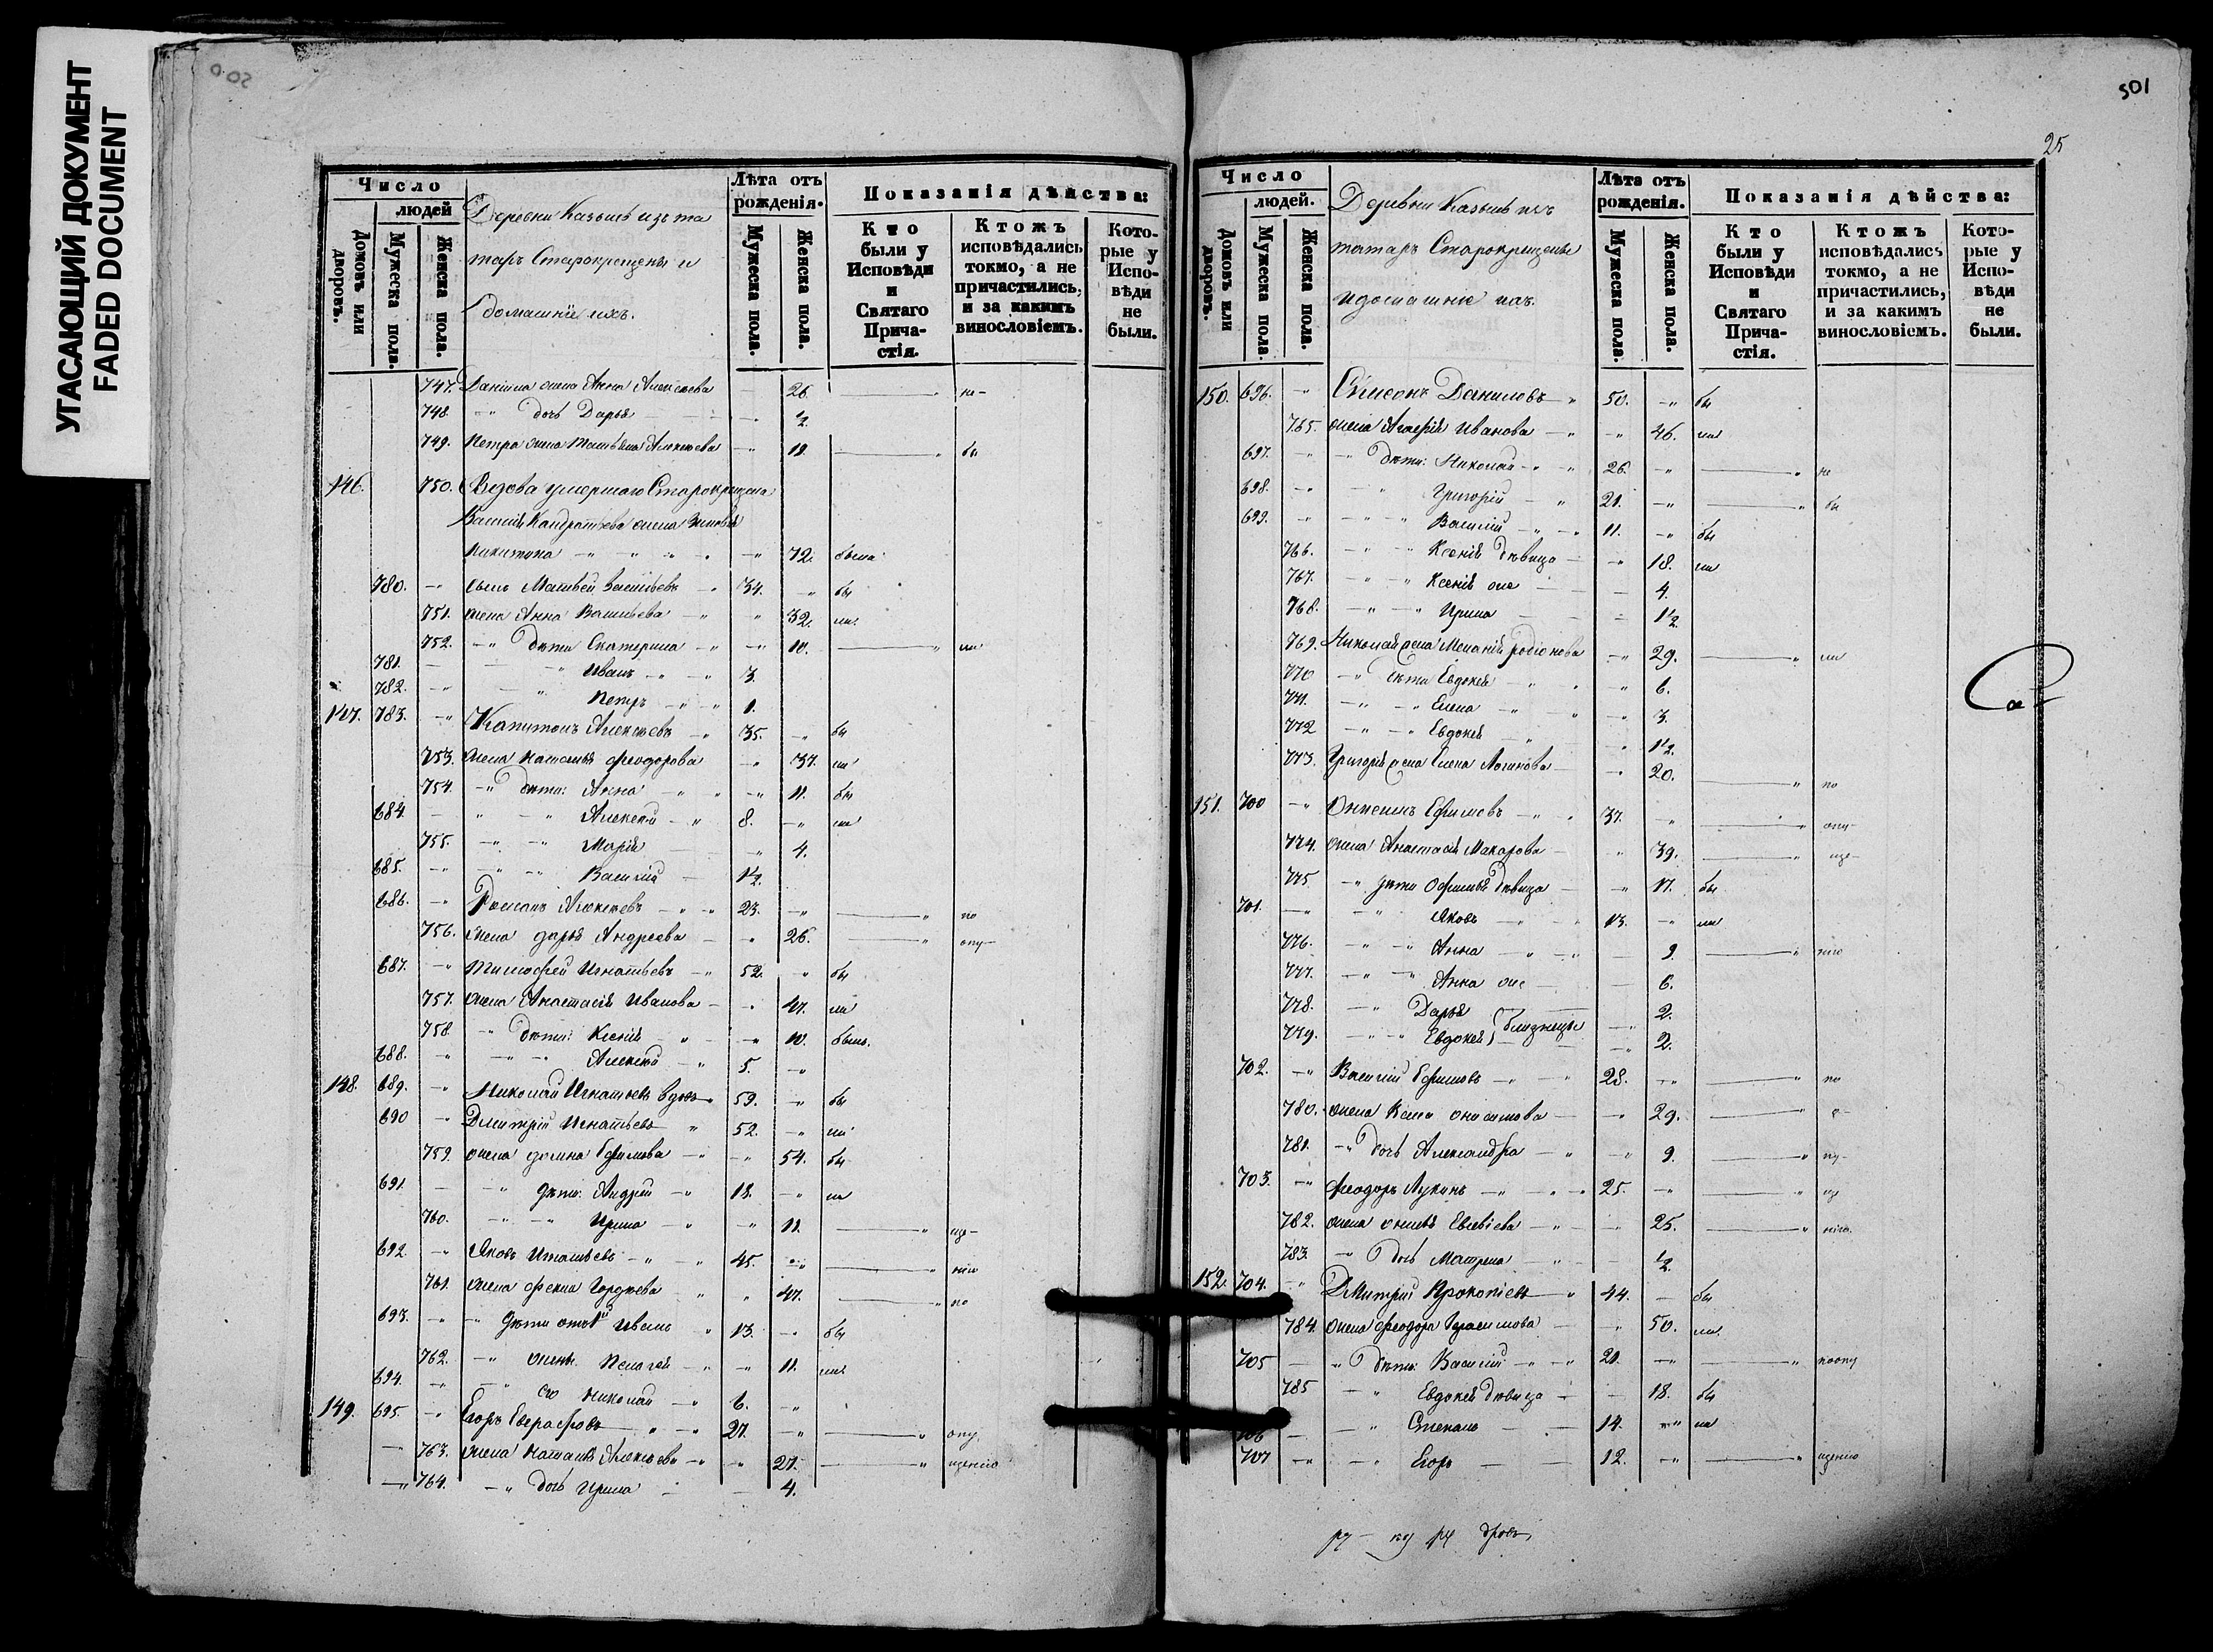 УГАСАЮЩИЙ ДОКУМЕНТ
FADED DOCUMENT
501
25
Число
людей
Домовъ или дворовъ.
Мужеска пола.
Женска пола.
Деревни Казыли изъ та
таръ Старокрещены и
домашніе ихъ.
Лѣта отъ рожденія.
Мужеска пола.
Женска пола.
Показанія дѣйства:
Кто были у Исповѣди и Святаго Причастія.
Ктожъ исповѣдались токмо, а не причастились, и за какимъ винословіемъ.
Которые у Исповѣди не были.
747. Данила жена Анна Алексѣева 26. не-
748. дочь Дарья ½
749. Петра жена Татьяна Алексѣева 19. бы
146. 750. Вдова умершаго Старокрещена
Василія Кондратьева жена Зиновья
Никитина 72. была
780. сынъ Матвей Васильевъ 34. бы
751. жена Анна Васильева 32. ли
752. дѣти Екатерина 10. ли
781. Иванъ 3.
782. Петръ 1.
147. 783. Капитонъ Алексѣевъ 35. бы
753. жена Наталья Феодорова 37. ли
754. дѣти: Анна 11. бы
684. Алексѣй 8. ли
755. Марія 4.
685. Василій 1½
686. Романъ Алексѣевъ 23. по
756. жена Дарья Андреева 26. опу-
687. Тимофей Игнатьевъ 52. бы
757. жена Анастасія Иванова 47. ли
758. дѣти: Ксенія 10. были.
688. Алексѣй 5.
148. 689. Николай Игнатьевъ вдовъ 59. бы
690 Дмитрій Игнатьевъ 52. ли
759. жена Домна Ефимова 54. бы
691. дѣти: Андрей 18. ли
760. Ирина 11. ще-
692. Яковъ Игнатьевъ 45. нію
761. жена Фекла Гордѣева 47. по
693. дѣти отъ 1й Иванъ 13. бы
762. жены Пелагея 11. ли
694. его Николай 6.
149. 695. Егоръ Еверафовъ 27. опу
763. жена Наталья Алексѣева 27. щенію
764. дочь Ирина 4.
Число
людей.
Домовъ или дворовъ.
Мужеска пола.
Женска пола.
Деревни Казыли изъ
татаръ Старокрещены
и домашніе ихъ.
Лѣта отъ рожденія.
Мужеска пола.
Женска пола.
Показанія дѣйства:
Кто были у Исповѣди и Святаго Причастія.
Ктожъ исповѣдались токмо, а не причастились, и за какимъ винословіемъ.
Которые у Исповѣди не были.
150. 696. Симеонъ Даниловъ 50. бы
765. жена Агафія Иванова 46. ли
697. дѣти: Николай 26. не
698. Григорій 21. бы
699. Василій 11. бы
766. Ксенія дѣвица 18. ли
767. Ксенія же 4.
768. Ирина 1½
769. Николая жена Меланія Родіонова 29. ли
770 дѣти Евдокея 6.
771. Елена 3.
772 Евдокея 1½.
773. Григорія жена Елена Логинова 20. по
151. 700 Онисимъ Ефимовъ 37. опу-
774. жена Анастасія Макарова 39. ще-
775 дѣти Офимья дѣвица 17. бы
701. Яковъ 13. ли
776. Анна 9. нію
777. Анна же 6.
778. Дарья близнецы 2.
779. Евдокея 2.
702. Василій Ефимовъ 28. по
780. жена Онисимова 29.
781. дочь Александра 9. пу-
703. Феодоръ Лукинъ 25. ще
782. жена Евсевіева 25. нію.
783. дочь Матрена ½
152. 704. Дмитрій Прокопіевъ 44. бы
784. жена Феодора Герасимова 50. ли.
705 дѣти: Василій 21. поопу
785 Евдокея дѣвица 18. бы
706 Степанъ 14. ли
707 Егоръ 12. щенію